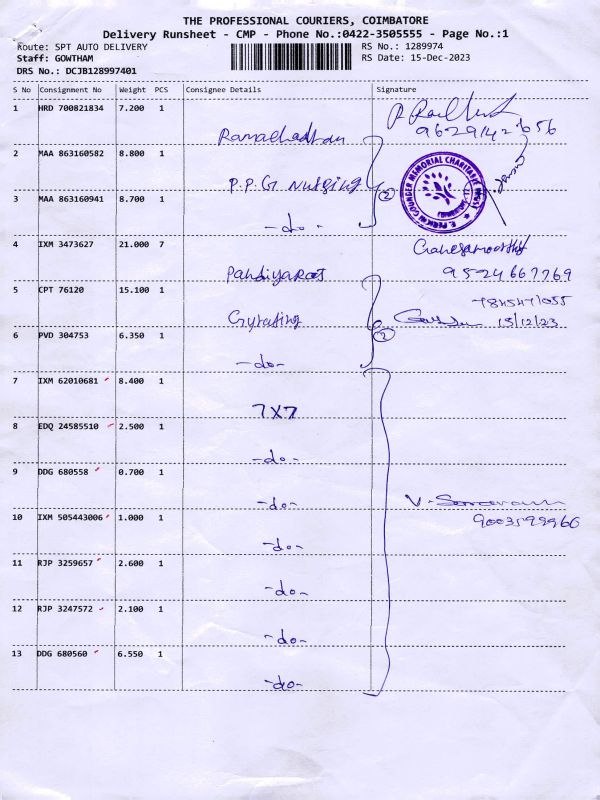 THE PROFESSIONAL COURIERS, COIMBATORE
Delivery Runsheet - CMP - Phone No.:0422-3505555 - Page No.:1
Route: SPT AUTO DELIVERY
RS No.: 1289974
Staff: GOWTHAM
RS Date: 15-Dec-2023
DRS No.: DCJB128997401
S No Consignment No Weight PCS Consignee Details Signature
1 HRD 700821834 7.200 1
Ramachadran
2 MAA 863160582 8.800 1
P.P.G. Nursing
2
3 MAA 863160941 8.700 1
-do-
4 IXM 3473627 21.000 7
Pandiyaraj
9524667769
5 CPT 76120 15.100 1
7845471055
Gyrating
15/12/23
6 PVD 304753 6.350 1
2
-do-
7 IXM 62010681 8.400 1
7X7
8 EDQ 24585510 2.500 1
-do-
9 DDG 680558 0.700 1
-do-
10 IXM 505443006 1.000 1
-do-
11 RJP 3259657 2.600 1
-do-
12 RJP 3247572 2.100 1
-do-
13 DDG 680560 6.550 1
-do-